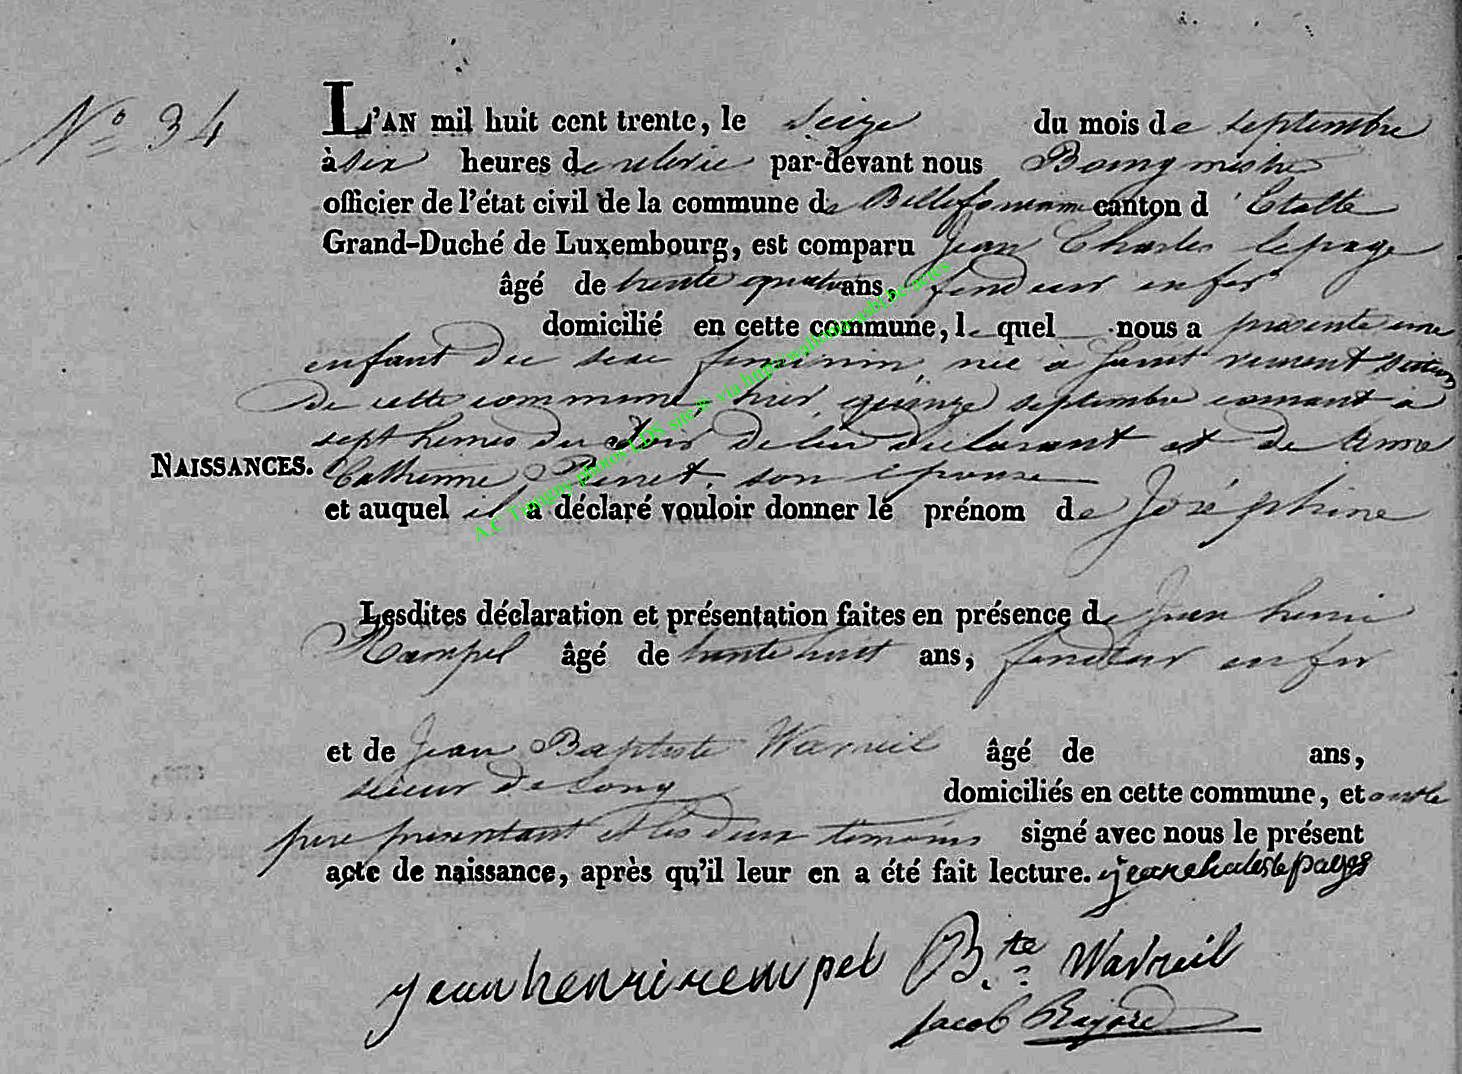 N.º 34
L'AN mil huit cent trente, le seize du mois de septembre
à six heures de relevée par-devant nous Bourgmestre
officier de l'état civil de la commune de Bellefontaine canton d'Etalle
Grand-Duché de Luxembourg, est comparu Jean Charles lepage
âgé de trente quatre ans, fondeur en fer
domicilié en cette commune, le quel nous a présenté une
enfant du sexe feminin, née à section
de cette commune, hier, quinze septembre courant à
sept heures du soir de lui déclarant et de
Catherine Pinet, son épouse
NAISSANCES.
et auquel il a déclaré vouloir donner le prénom de Joséphine
Lesdites déclaration et présentation faites en présence de Jean henri
Rampel âgé de trente huit ans, fondeur en fer
et de Jean Baptiste Warveil âgé de ans,
sieur de long domiciliés en cette commune, et ont le
pere présentant et les deux temoins signé avec nous le présent
acte de naissance, après qu'il leur en a été fait lecture. jean charles lepages
jean henri rempel B.te Warveil
Jacob
A.C Tintigny photos LDS site © via